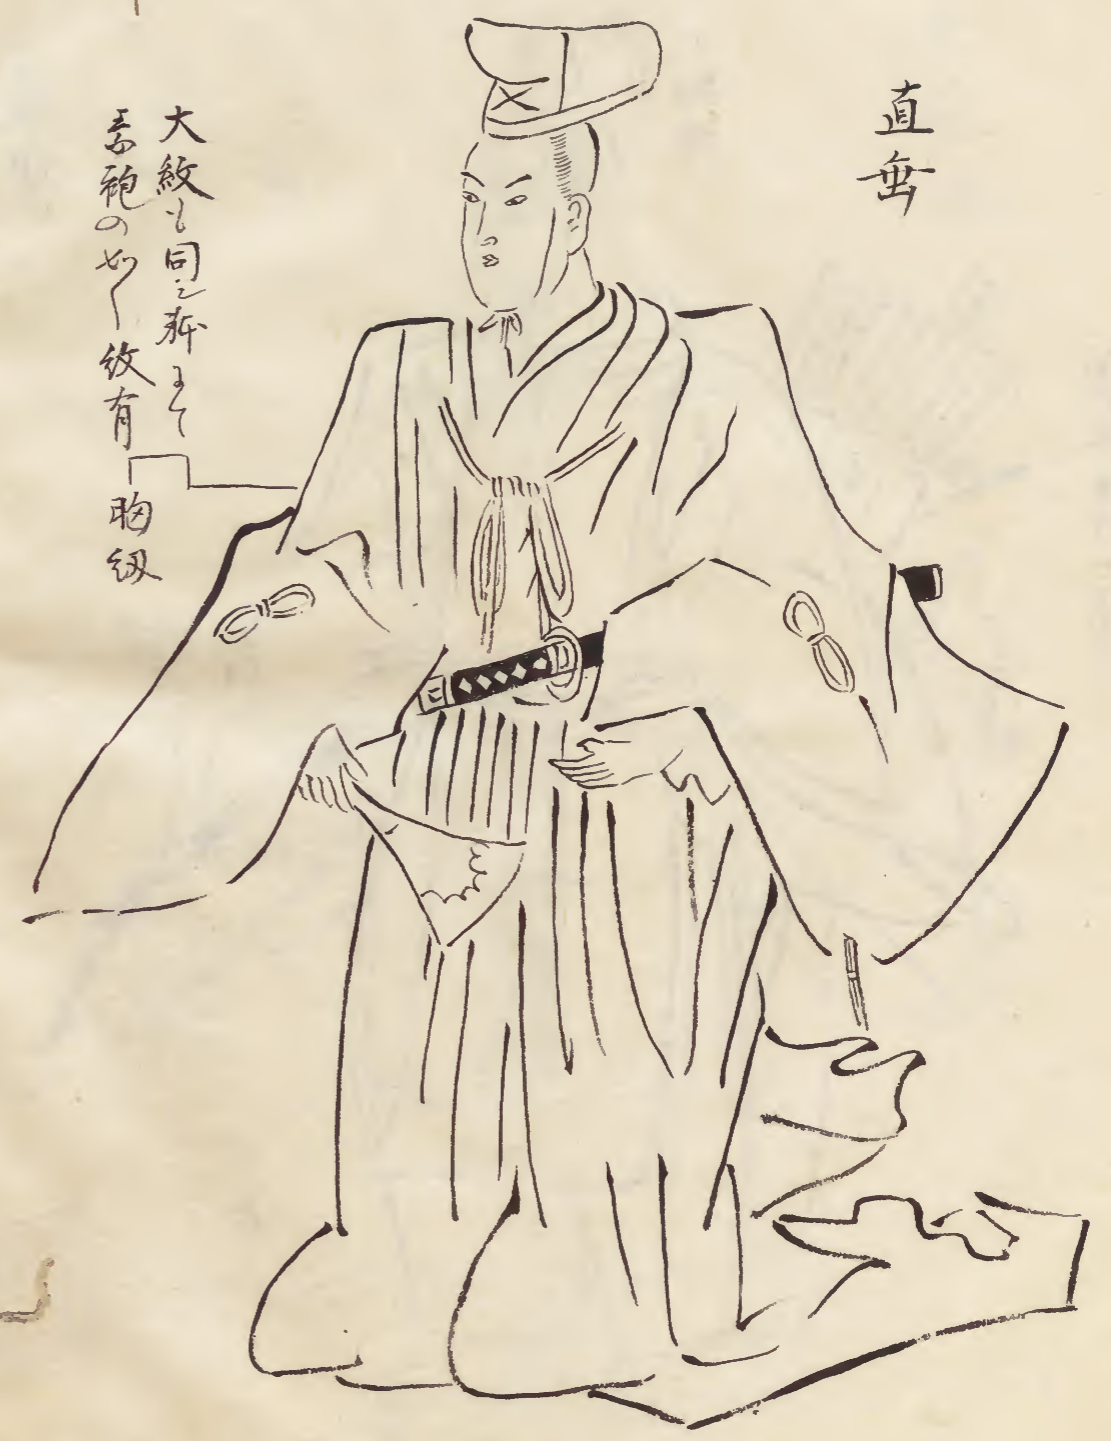 直垂
大紋も同之形にて
素袍の如く紋有
胸紐